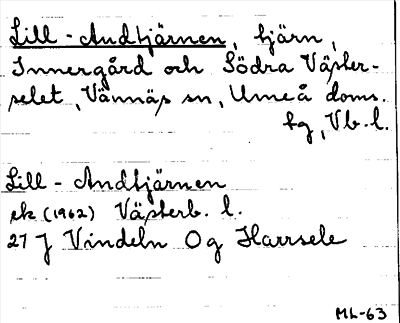 Lill-Andtjärnen, tjärn,
Innergård och Södra Väster-
selet, Vännäs sn, Umeå doms.
tg, Vb. l.
Lill-Andtjärnen
ek (1962) Västerb. l.
27 J Vindeln Og Harrsele
ML-63